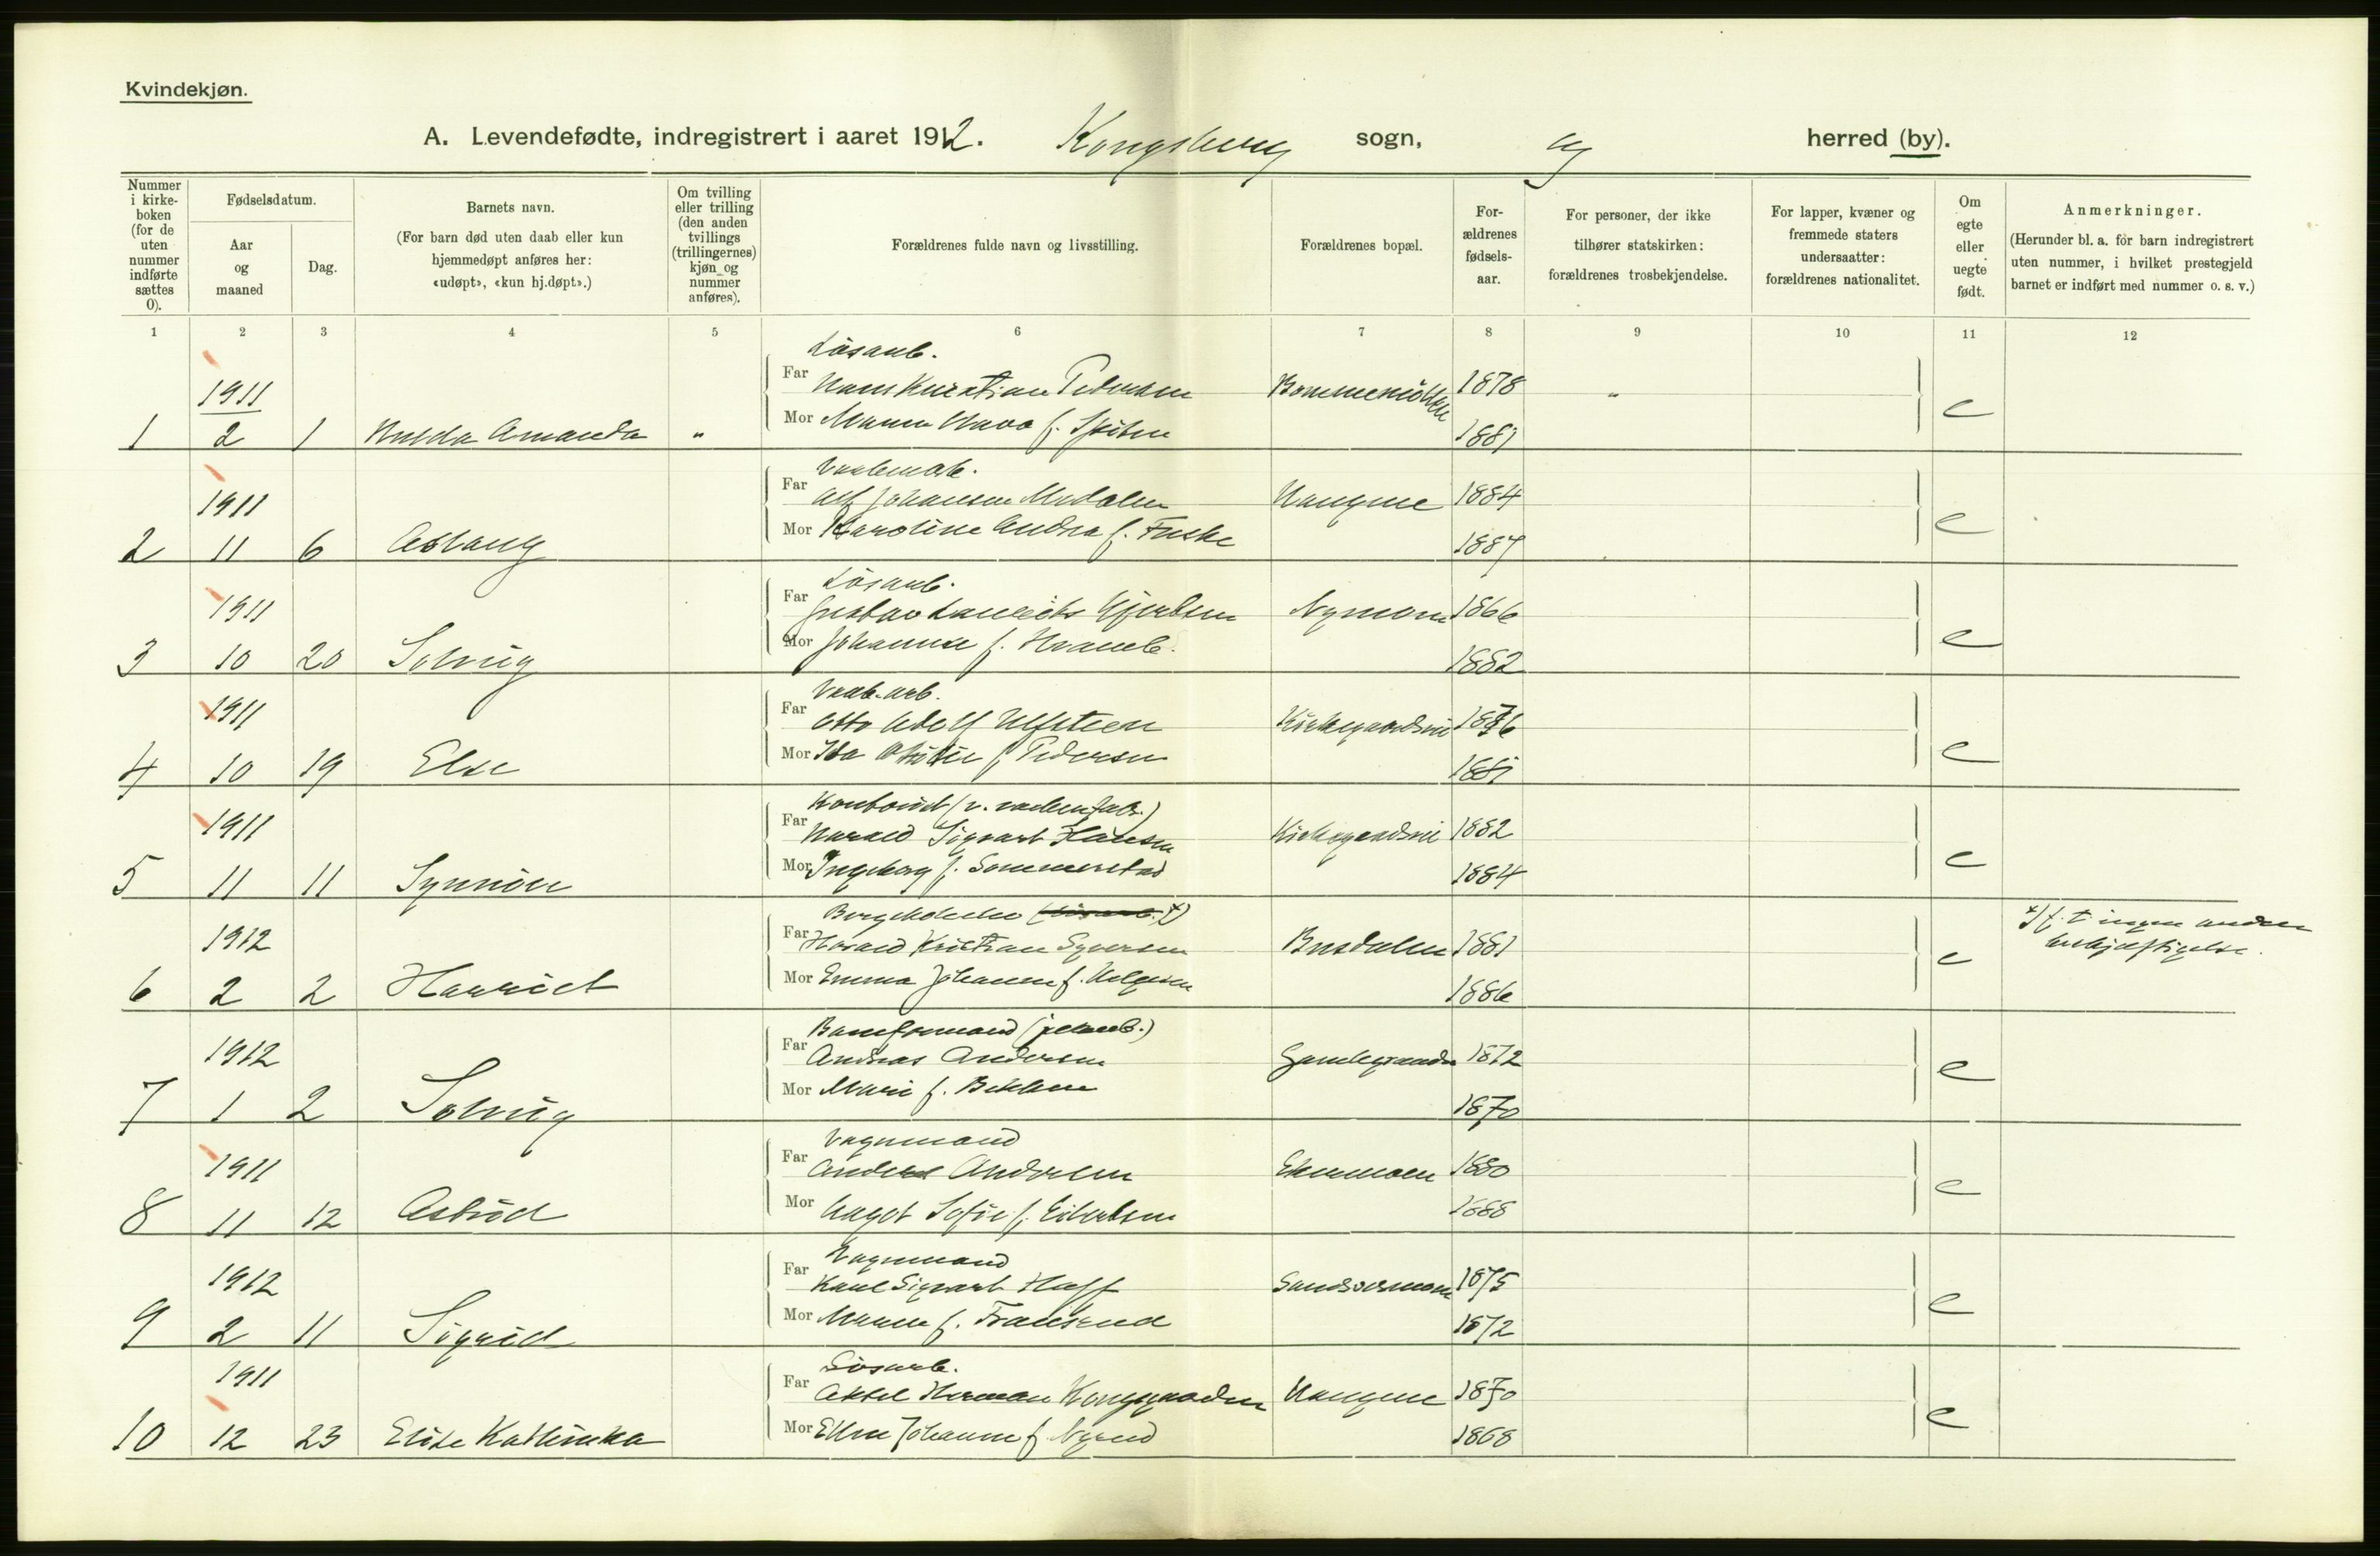 Kvindekjøn.
A. Levendefødte, indregistrert i aaret 1912. Kongsberg sogn, og herred (by).
Nummer i kirke-boken (for de uten nummer indførte sættes 0).
Fødselsdatum.
Aar og maaned
Dag.
Barnets navn.
(For barn død uten daab eller kun hjemmedøpt anføres her: «udøpt», «kun hj.døpt».)
Om tvilling eller trilling (den anden tvillings (trillingernes) kjøn og nummer anføres).
Forældrenes fulde navn og livsstilling.
Forældrenes bopæl.
For-ældrenes fødsels-aar.
For personer, der ikke tilhører statskirken: forældrenes trosbekjendelse.
For lapper, kvæner og fremmede staters undersaatter: forældrenes nationalitet.
Om egte eller uegte født.
Anmerkninger.
(Herunder bl. a. for barn indregistrert uten nummer, i hvilket prestegjeld barnet er indført med nummer o. s. v.)
1 2 3 4 5 6 7 8 9 10 11 12
Løsarb.
1911 Far Hans Kristian Pedersen 1878 "
1 2 1 Hulda Amanda " Mor Maren f. 1881 e
Far
1911 Alf Johansen Hangene 1884
2 11 6 Aslaug Mor Karoline Andrea f. Fuske 1887 e
Løsarb.
1911 Far Gustav Laurits Nymoen 1866
3 10 20 Solveig Mor Johanne f. 1882 e
Vaab.arb.
1911 Far Otto Adolf Ulfsteen Kirkegaardsvei 1876
4 10 19 Else Mor Ida f. Pedersen 1881 e
1911 Far Harald Sigvart Hansen Kirkegaardsvei 1882
5 11 11 Synnöve Mor Ingeborg f. Sommerstad 1884 e
1912 Far Harald Kristian Syversen Busdalen 1881 x) f. t. ingen anden beskjæftigelse.
6 2 2 Harriet Mor Emma Johanne f. Helgesen 1886 e
Baneformand
1912 Far Andreas Andersen 1872
7 1 2 Solveig Mor Marie f. 1870 e
Vognmand
1911 Far Anders Andersen 1880
8 11 12 Astrid Mor Aagot Sofie f. 1888 e
Vognmand
1912 Far Karl Sigvart Hoff 1875
9 2 11 Sigrid Mor Maren f. 1872 e
Løsarb.
1911 Far Aksel Herman Kongsgaarden Hangene 1870
10 12 23 Elise Kathinka Mor Ellen Johanne f. Nyrud 1868 e